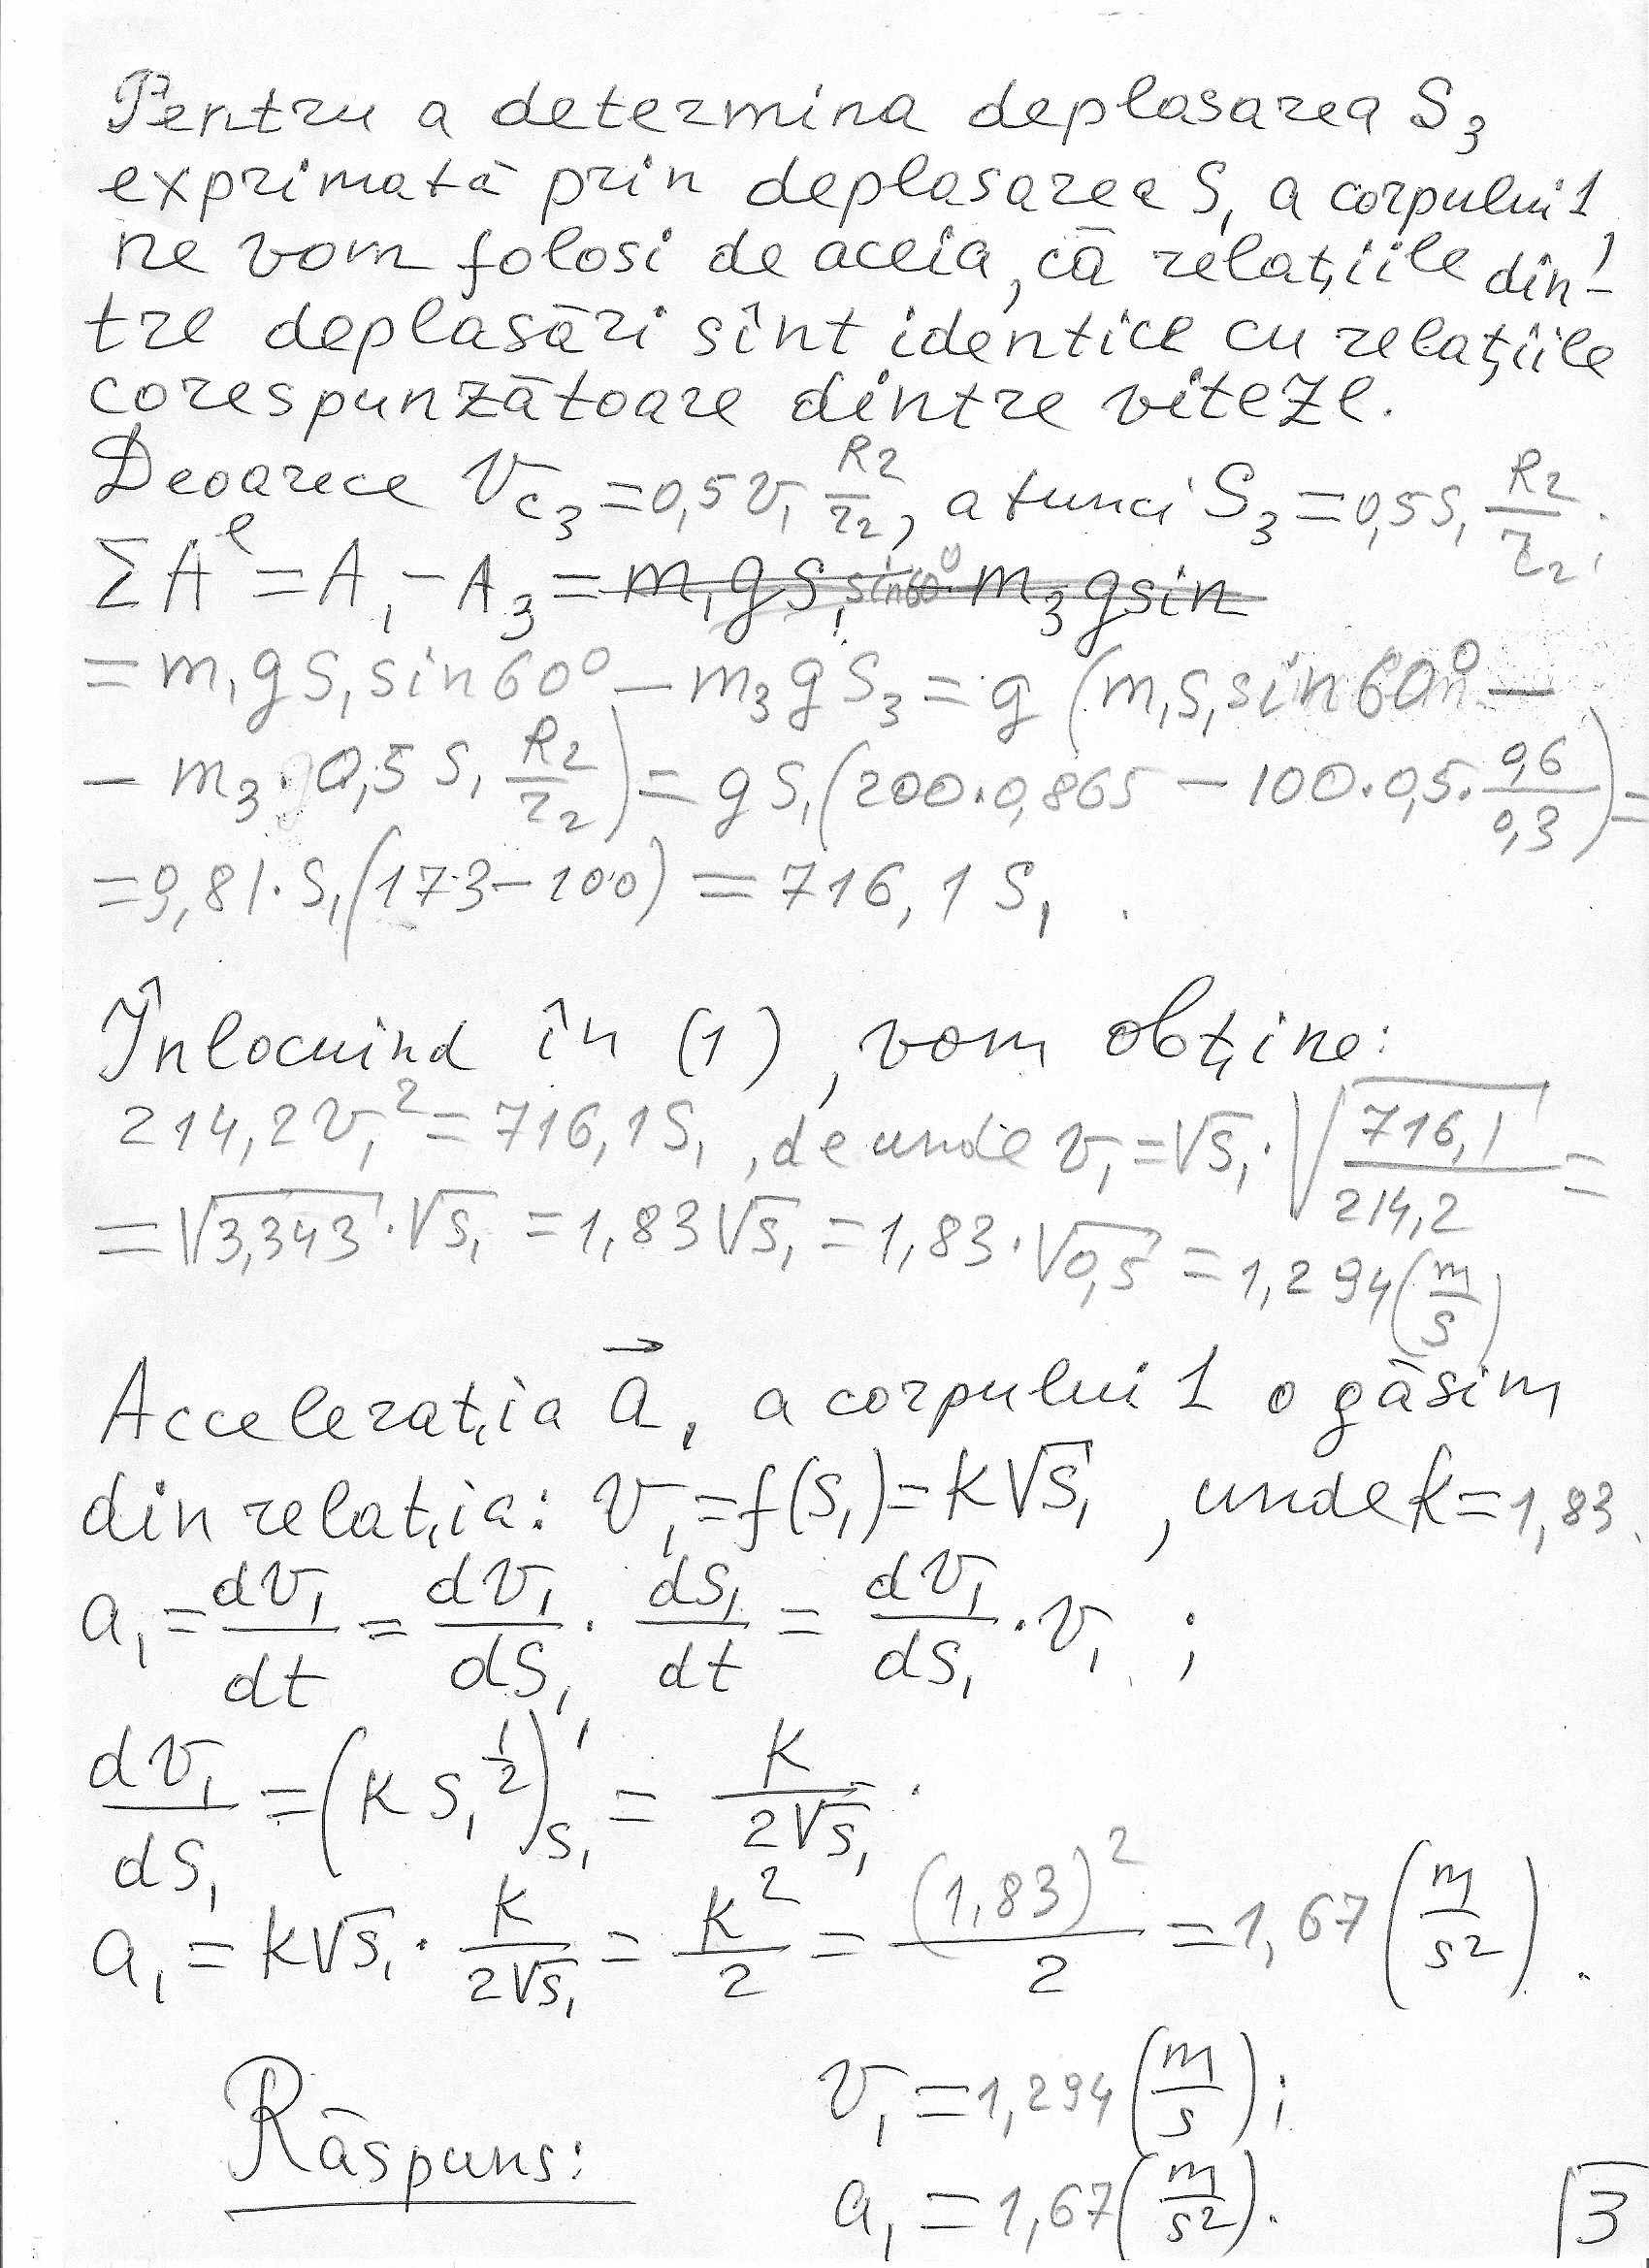 Pentru a determina deplasarea S₃
exprimată prin deplasarea S₁ a corpului 1
ne vom folosi de aceia, că relațiile din-
tre deplasări sînt identice cu relațiile
corespunzătoare dintre viteze.
Deoarece V_C₃ = 0,5 v₁ R₂/r₂, atunci S₃ = 0,5 S₁ R₂/r₂.
ΣAᵉ = A₁ – A₃ = m₁gS₁ sin60° m₃gsin
= m₁gS₁ sin60° – m₃gS₃ = g (m₁S₁ sin60° –
– m₃·0,5 S₁ R₂/r₂) = gS₁(200·0,865 – 100·0,5·0,6/0,3) =
= 9,81·S₁(173 – 100) = 716,1 S₁.
Înlocuind în (1), vom obține:
214,2 v₁² = 716,1 S₁, de unde v₁ = √S₁·√(716,1/214,2) =
= √3,343·√S₁ = 1,83√S₁ = 1,83·√0,5 = 1,294 (m/s)
Accelerația a⃗₁ a corpului 1 o găsim
din relația: v₁ = f(S₁) = k√S₁, unde k = 1,83.
a₁ = dv₁/dt = dv₁/dS₁ · dS₁/dt = dv₁/dS₁ · v₁ ;
dv₁/dS₁ = (k S₁^½)'_S₁ = k/2√S₁.
a₁ = k√S₁ · k/2√S₁ = k²/2 = (1,83)²/2 = 1,67 (m/s²).
Răspuns: v₁ = 1,294 (m/s);
a₁ = 1,67 (m/s²).
3